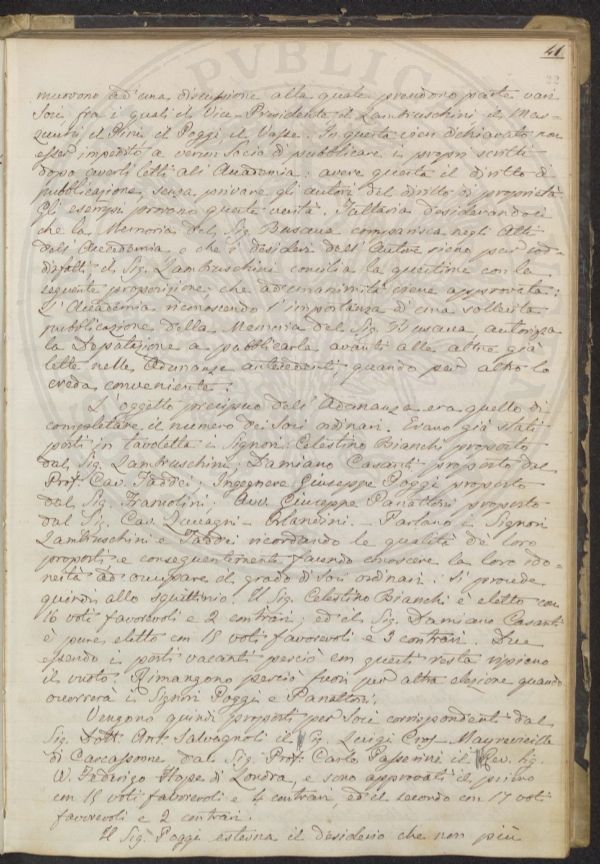 41
muovono ad'una discussione alla quale prendono parte vari
Soci fra i quali il Vice-Presidente il Lambruschini il Mar-
zucchi il Pini il Poggi il Vasse. In questa vien dichiarato non
esser impedito a verun Socio di pubblicare i propri scritti
dopo averli letti all'Accademia: avere questa il diritto di
pubblicazione, senza privare gli autori del diritto di proprietà
Gli esempi provano questa verità. Tuttavia desiderandosi
che la Memoria del Sig. Buscava comparisca negli Atti
dell'Accademia e che i desideri dell'Autore sieno pur sod-
disfatti, il Sig. Lambruschini concilia la questione con la
seguente proposizione che ad'unanimità viene approvata:
L'Accademia riconoscendo l'importanza d'una sollecita
pubblicazione della Memoria del Sig. Buscava autorizza
la Deputazione a pubblicarla avanti alle altre già
lette nelle Adunanze antecedenti quando però altro lo
creda conveniente:
L'oggetto precipuo dell'Adunanza era quello di
completare il numero dei Soci ordinari. Erano già stati
posti in tavoletta i Signori Celestino Bianchi proposto
dal Sig. Lambruschini; Damiano Casanti proposto dal
Prof. Cav. Taddei; Ingegnere Giuseppe Poggi proposto
dal Sig. Francolini; Avv. Giuseppe Panattoni proposto
dal Sig. Cav. Zuccagni-Orlandini. - Parlano i Signori
Lambruschini e Taddei ricordando le qualità de' loro
proposti e conseguentemente facendo conoscere la loro ido-
neità ad occupare il grado di Soci ordinari: Si procede
quindi allo squittinio. Il Sig. Celestino Bianchi è eletto con
16 voti favorevoli e 2 contrari; ed il Sig. Damiano Casanti
è pure eletto con 15 voti favorevoli e 3 contrari. Due
essendo i posti vacanti perciò con questi resta ripieno
il vuoto. Rimangono perciò fuori per altra elezione quando
occorrerà i Signori Poggi e Panattoni.
Vengono quindi proposti per Soci corrispondenti dal
Sig. Dott. Ant. Salvagnoli il Sig. Luigi Cros Mayrevieille
di Carcassonne dal Sig. Prof. Carlo Passerini il Rev. Sig.
W. Federigo Hope di Londra, e sono approvati il primo
con 15 voti favorevoli e 4 contrari ed il secondo con 17 voti
favorevoli e 2 contrari.
Il Sig. Poggi esterna il desiderio che non più